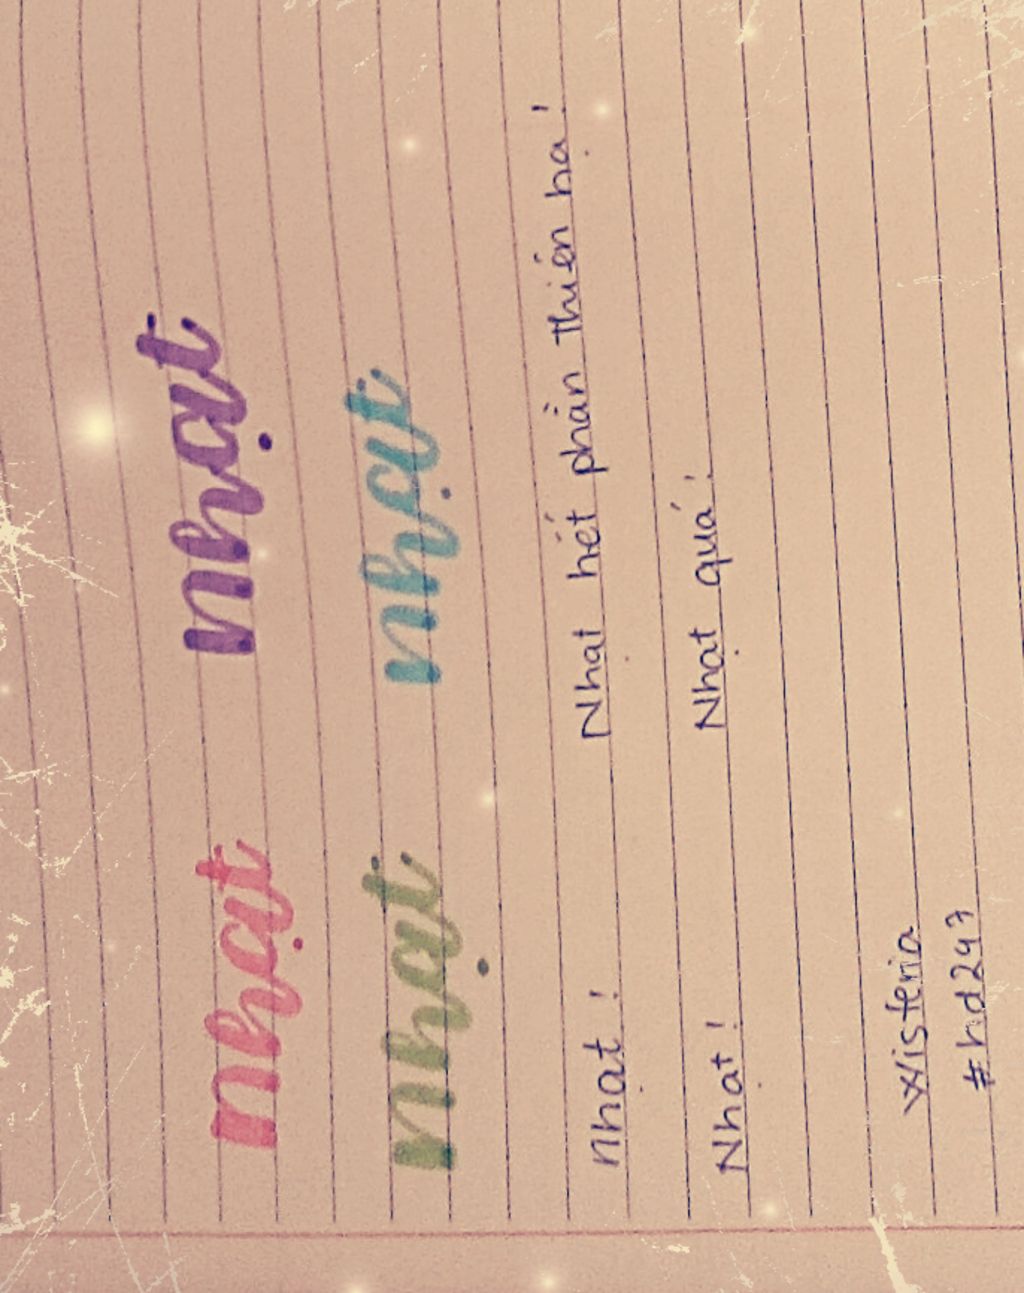 nhạt nhạt
nhạt nhạt
nhạt! Nhạt hết phần thiên hạ!
Nhạt! Nhạt quá!
Wisteria
#hd247